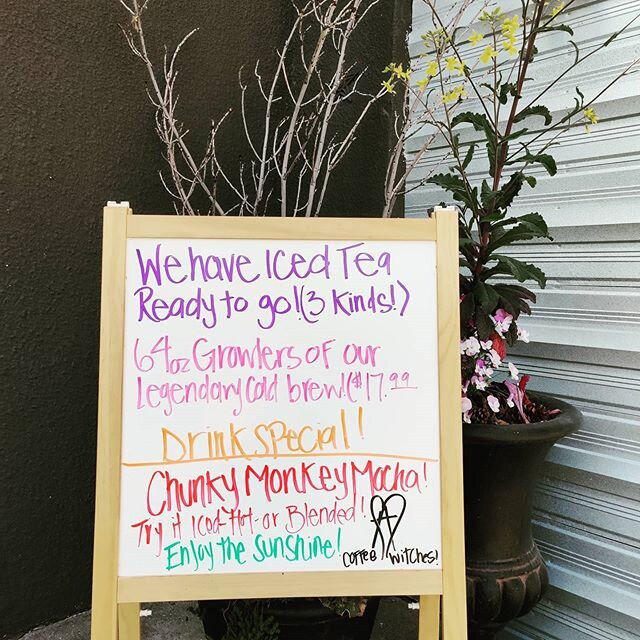 We have Iced Tea
Ready to go! (3 Kinds!)
64oz Growlers of our
Legendary Cold brew! ($17.99
Drink Special!
Chunky Monkey Mocha!
Try it Iced-Hot-or Blended!
Enjoy the Sunshine!
Coffee Witches!